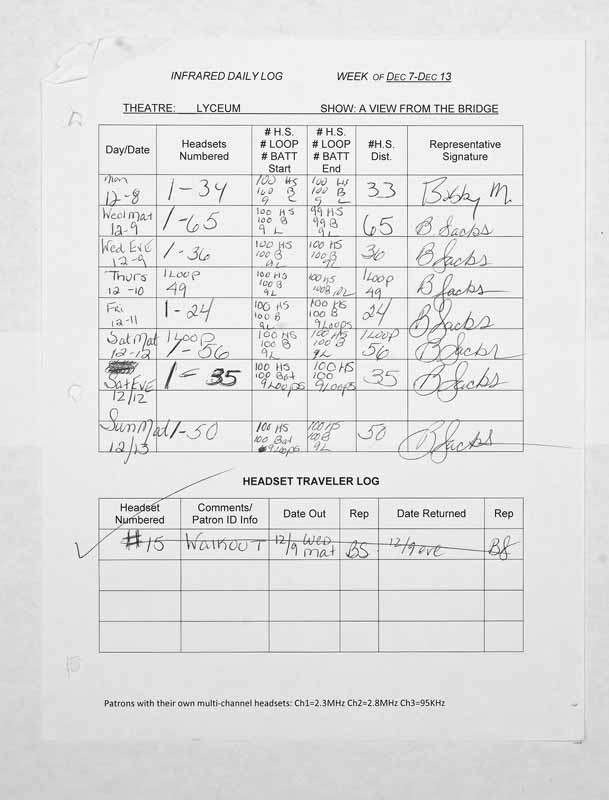 INFRARED DAILY LOG WEEK OF DEC 7-DEC 13
THEATRE: LYCEUM SHOW: A VIEW FROM THE BRIDGE
Day/Date Headsets Numbered # H.S. # LOOP # BATT Start # H.S. # LOOP # BATT End #H.S. Dist. Representative Signature
Mon 12-8 1-34 100 HS 100 B 9 L 100 HS 100 B 9 L 33 Bobby M.
Wed Mat 12-9 1-65 100 HS 100 B 9 L 99 HS 99 B 9 L 65 B Jacks
Wed EVE 12-9 1-36 100 HS 100 B 9L 100 HS 100 B 9L 36 B Jacks
Thurs 12-10 1 LOOP 49 100 HS 100 B 9L 100 HS 100B 1 LOOP 49 B Jacks
Fri 12-11 1-24 100 HS 100 B 9L 100 HS 100 B 9 Loops 24 B Jacks
Sat Mat 12-12 1 LOOP 1-56 100 HS 100 B 9L 100 HS 100 B 9L 1 LOOP 56 B Jacks
Sat EVE 12/12 1-35 100 HS 100 Bat 9 Loops 100 HS 100 9 Loops 35 B Jacks
Sun Mat 12/13 1-50 100 HS 100 Bat 9 Loops 100 HS 100 B 9 L 50 B Jacks
HEADSET TRAVELER LOG
Headset Numbered Comments/ Patron ID Info Date Out Rep Date Returned Rep
#15 WALKOUT 12/9 Wed mat BS 12/9 eve BJ
15
Patrons with their own multi-channel headsets: Ch1=2.3MHz Ch2=2.8MHz Ch3=95KHz